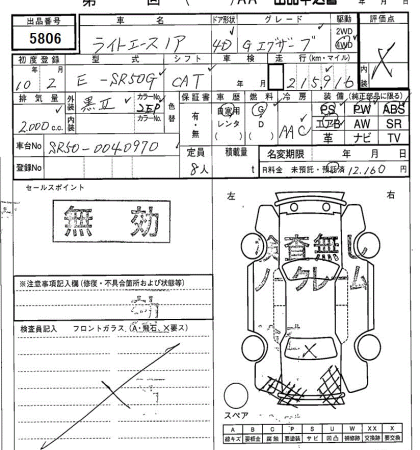 出品番号 車名 ドア形状 グレード 駆動 評価点
5806 ライトエースノア 4D Gエクザーブ 2WD 4WD
初度登録 型式 シフト 車検 走行(km・マイル) 内装
10年 2月 E-SR50G CAT 年 月 215,916
排気量 外装 黒II カラーNo. 2EP カラーNo. 色替 保証書 車歴 燃料 冷房 装備(純正部品に限る)
2,000c.c. 内装 有・無 自家用 レンタ G D AAC PS PW ABS
エアB AW SR
革 ナビ TV
車台No SR50-0040970 定員 積載量 名変期限 年 月 日
登録No 8人 t R料金 未預託・預託済 12,160円
セールスポイント
無効
左 右
検査無し
ノークレーム
※注意事項記入欄(修復・不具合箇所および状態等)
検査員記入 フロントガラス(A・飛石、X要ス)
スペア
A B C P S U W X XX X
線キズ 要板金 腐蝕 要塗装 サビ 凹凸 補修跡 交換跡 要交換